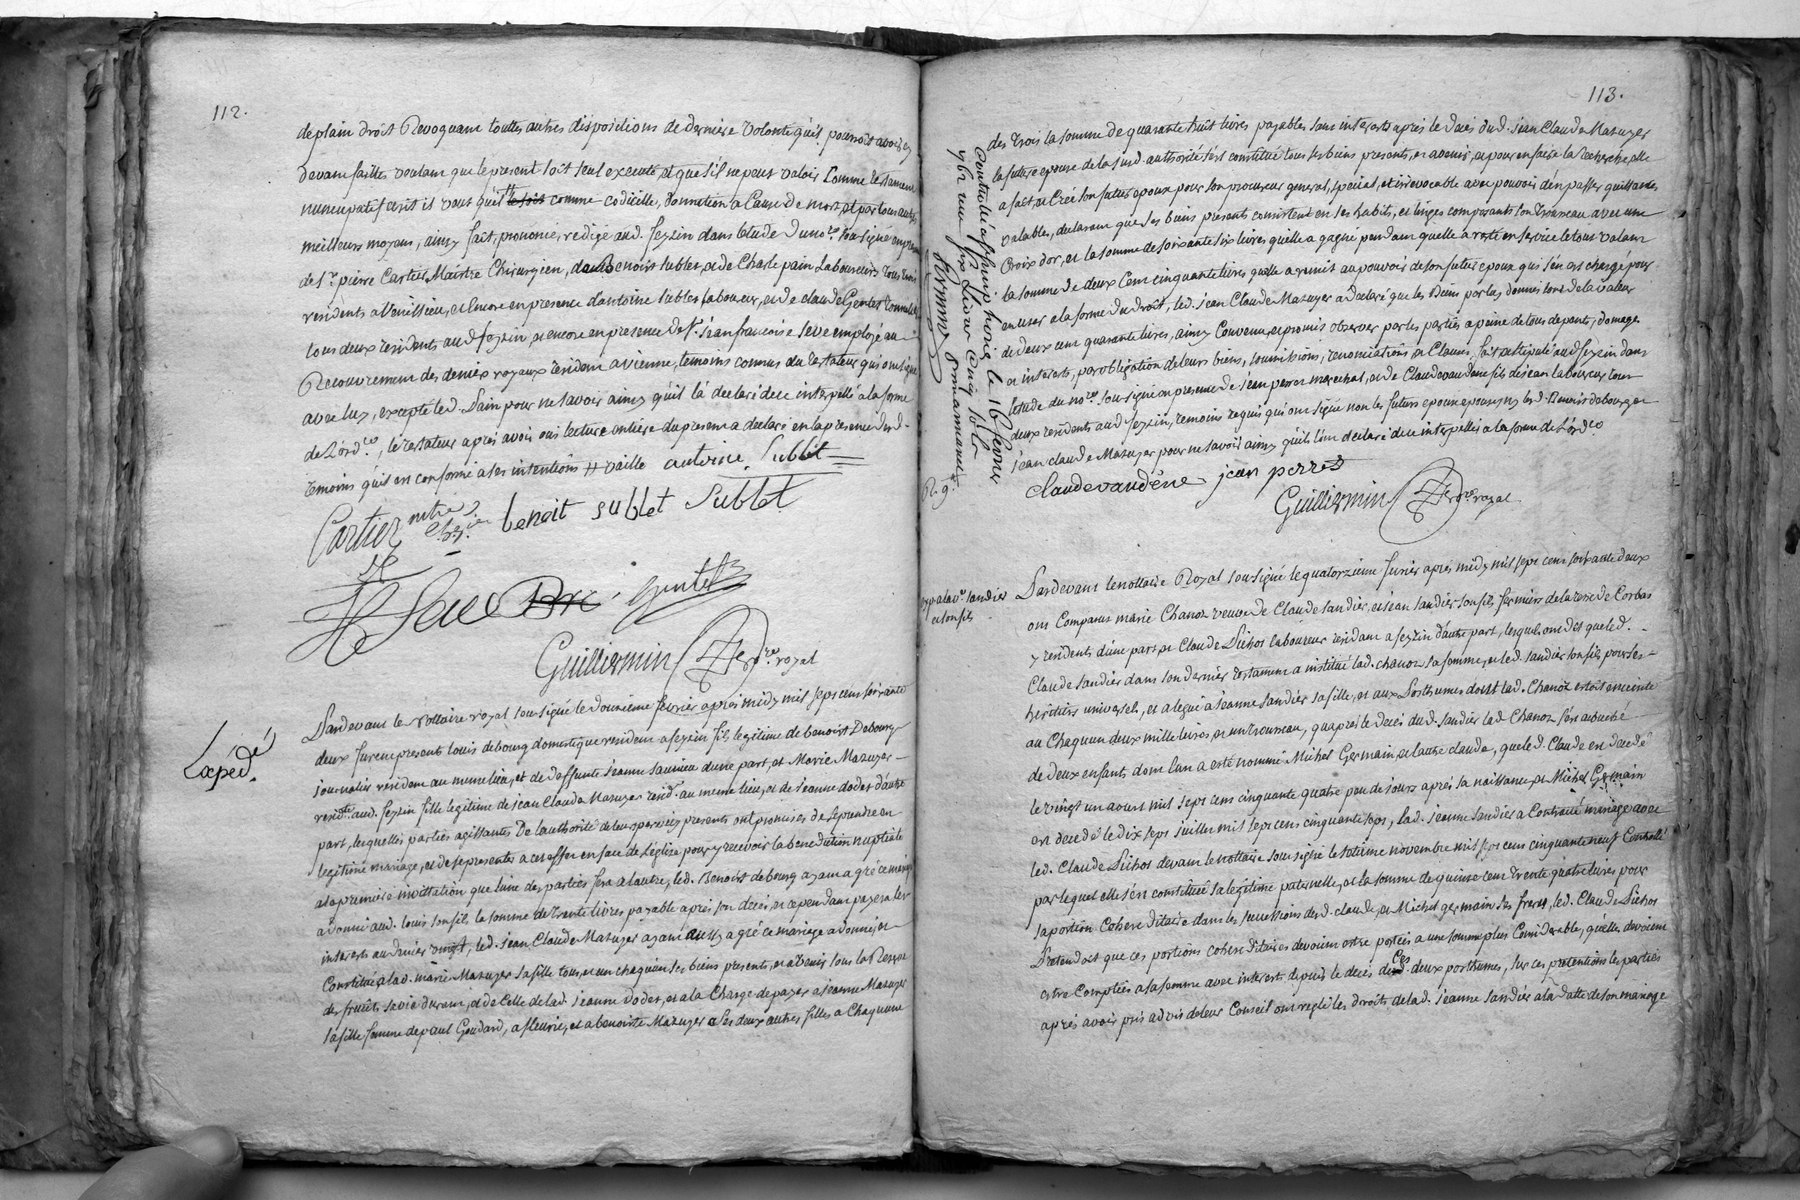 112.
de plain droit Revoquant touttes autres dispositions de derniere volonté qu'il pourroit avoir cy
devant faittes voulant que le present soit seul executé, et que s'il ne peut valoir comme testament
nuncupatif ecrit il veut qu'il le soit comme codicille, donnation a cause de mort, et par tous autres
meilleurs moyens, ainsy fait, prononcé, redigé aud. feyzin dans l'etude du nore. soussigné en presence
de Sr. pierre Cartier Maitre Chirurgien, de Benoist sublet, et de Charle pain Laboureurs tous trois
residents a Venissieu, et encore en presence d'antoine sublet laboureur, et de claude Gentet
tous deux residents aud feyzin, et encore en presence de Sr. jean francois seve employé au
Recouvrement des deniers royaux resident a vienne, temoins connus du testateur qui ont signé
avec luy, excepté led. Pain pour ne savoir ainsy qu'il l'a declaré de ce interpellé a la forme
de L'ordce, le testateur apres avoir oui lecture entiere du present a declaré en la presence desd.
temoins qu'il est conforme a ses intentions # vaille antoine Sublet
Cartier mtre chir.ien benoit sublet Sublet
Seve Gentet
Guilliermin nore. royal
Expedié
Pardevant le Nottaire royal soussigné le douzieme fevrier apres midy mil sept cens soixante
deux furent presents louis debourg domestique resident a feyzin fils legitime de benoist Debourg
journalier resident au meme lieu, et de deffunte jeanne saunier d'une part, et Marie Mazuyer
residte. aud. feyzin fille legitime de jean Claude Mazuyer residt. au meme lieu, et de jeanne dodet d'autre
part, lesquelles parties agissantes De l'authorité de leurs peres icy presents ont promises de se prendre en
legitime mariage, et de se presenter a cet effet en face de L'eglise pour y recevoir la benediction nuptiale
a la premiere invittation que l'une des parties fera a l'autre, led. Benoist debourg ayant agréé ce mariage
a donné aud. louis son fils, la somme de trente livres payable apres son deces, et cependant payera les
interests au denier vingt, led. jean Claude Mazuyer ayant aussy agréé ce mariage a donné, et
constitué a lad. marie Mazuyer sa fille tous, et un chaquun ses biens presents, et a venir sous la Reserve
des fruits sa vie durant, et de celle de lad. jeanne dodet, et a la Charge de payer a jeanne Mazuyer
sa fille femme de paul Goudard, a fleurie, et a benoiste Mazuyer ses deux autres filles a Chaquune
113.
des trois la somme de quarante huit livres payables sans interests apres le deces dud. jean Claude Mazuyer
la future epouse de la susd. authorité s'est constitué tous ses biens presents, et avenir, et pour en faire la recherche, elle
a fait, et creé son futur epoux pour son procureur general, special, et irrevocable avec pouvoir d'en passer quittances
valables, declarant que ses biens presents consistent en ses habits, et linges composants son trousseau avec une
Croix d'or, et la somme de soixante six livres qu'elle a gagné pendant qu'elle a resté en service le tout valant
la somme de deux cent cinquante livres qu'elle a remit au pouvoir de son futur epoux qui s'en est chargé pour
en user a la forme du droit, led. jean Claude Mazuyer a declaré que les biens par luy donnés sont de la valeur
de deux cent quarante livres, ainsy convenu, et promis observer par les parties a peine de tous depents, domage
et interests, par obligation de leurs biens, soumissions, renonciations, et Clauses, fait et stipulé aud feyzin dans
l'etude du nore. soussigné en presence de jean perret marechal, et de Claude vaudene fils de jean laboureur tous
deux residents aud feyzin, temoins requis qui ont signé non les futurs epoux epouse, ny lesd. Benoist debourg et
jean claude Mazuyer pour ne savoir ainsy qu'ils l'ont declaré de ce interpellés a la forme de L'ordce.
claude vaudéne jean perret
Guilliermin nore. royal
Controllé a st simphorien le 16 fevrier
1762 reçu six Livres cinq sols
R. g.
exp. a la ve. sandier
et son fils
Pardevant le nottaire Royal soussigné le quatorzieme fevrier apres midy mil sept cens soixante deux
ont Comparus marie Chanoz veuve de Claude sandier, et jean sandier son fils fermiers de la terre de Corbas
y residents d'une part, et Claude Duchot laboureur resident a feyzin d'autre part, lesquels ont dit que led.
Claude sandier dans son dernier testament a institué lad. chanoz sa femme, et led. sandier son fils pour ses
heritiers universels, et a legué a jeanne sandier sa fille, et aux Posthumes dont lad. Chanoz estoit enceinte
au Chaquun deux mille livres et un trousseau, qu'apres le deces dud. sandier lad Chanoz s'est accouché
de deux enfants, dont l'un a esté nommé Michel Germain et l'autre claude, que led. Claude est decedé
le vingt un aoust mil sept cens cinquante quatre peu de jours apres sa naissance, et Michel Germain
est decedé le dix sept juillet mil sept cens cinquante sept, lad. jeanne sandier a contracté mariage avec
led. Claude Duchot devant le nottaire soussigné le septieme novembre mil sept cens cinquante neuf Controllé
par lequel elle s'est constitueé sa legitime paternelle, et la somme de quinze cent trente quatre livres pour
sa portion Cohereditaire dans les successions desd. claude, et Michel germain ses freres, led. Claude Duchot
Pretendoit que ces portions cohereditaires devoient estre portées a une somme plus Considerable, qu'elles devoient
estre Comptées a la somme avec interest depuis le deces desd. deux posthumes, sur ces pretentions les parties
apres avoir pris advis de leur Conseil ont reglé les droits de lad. jeanne sandier a la datte de son mariage